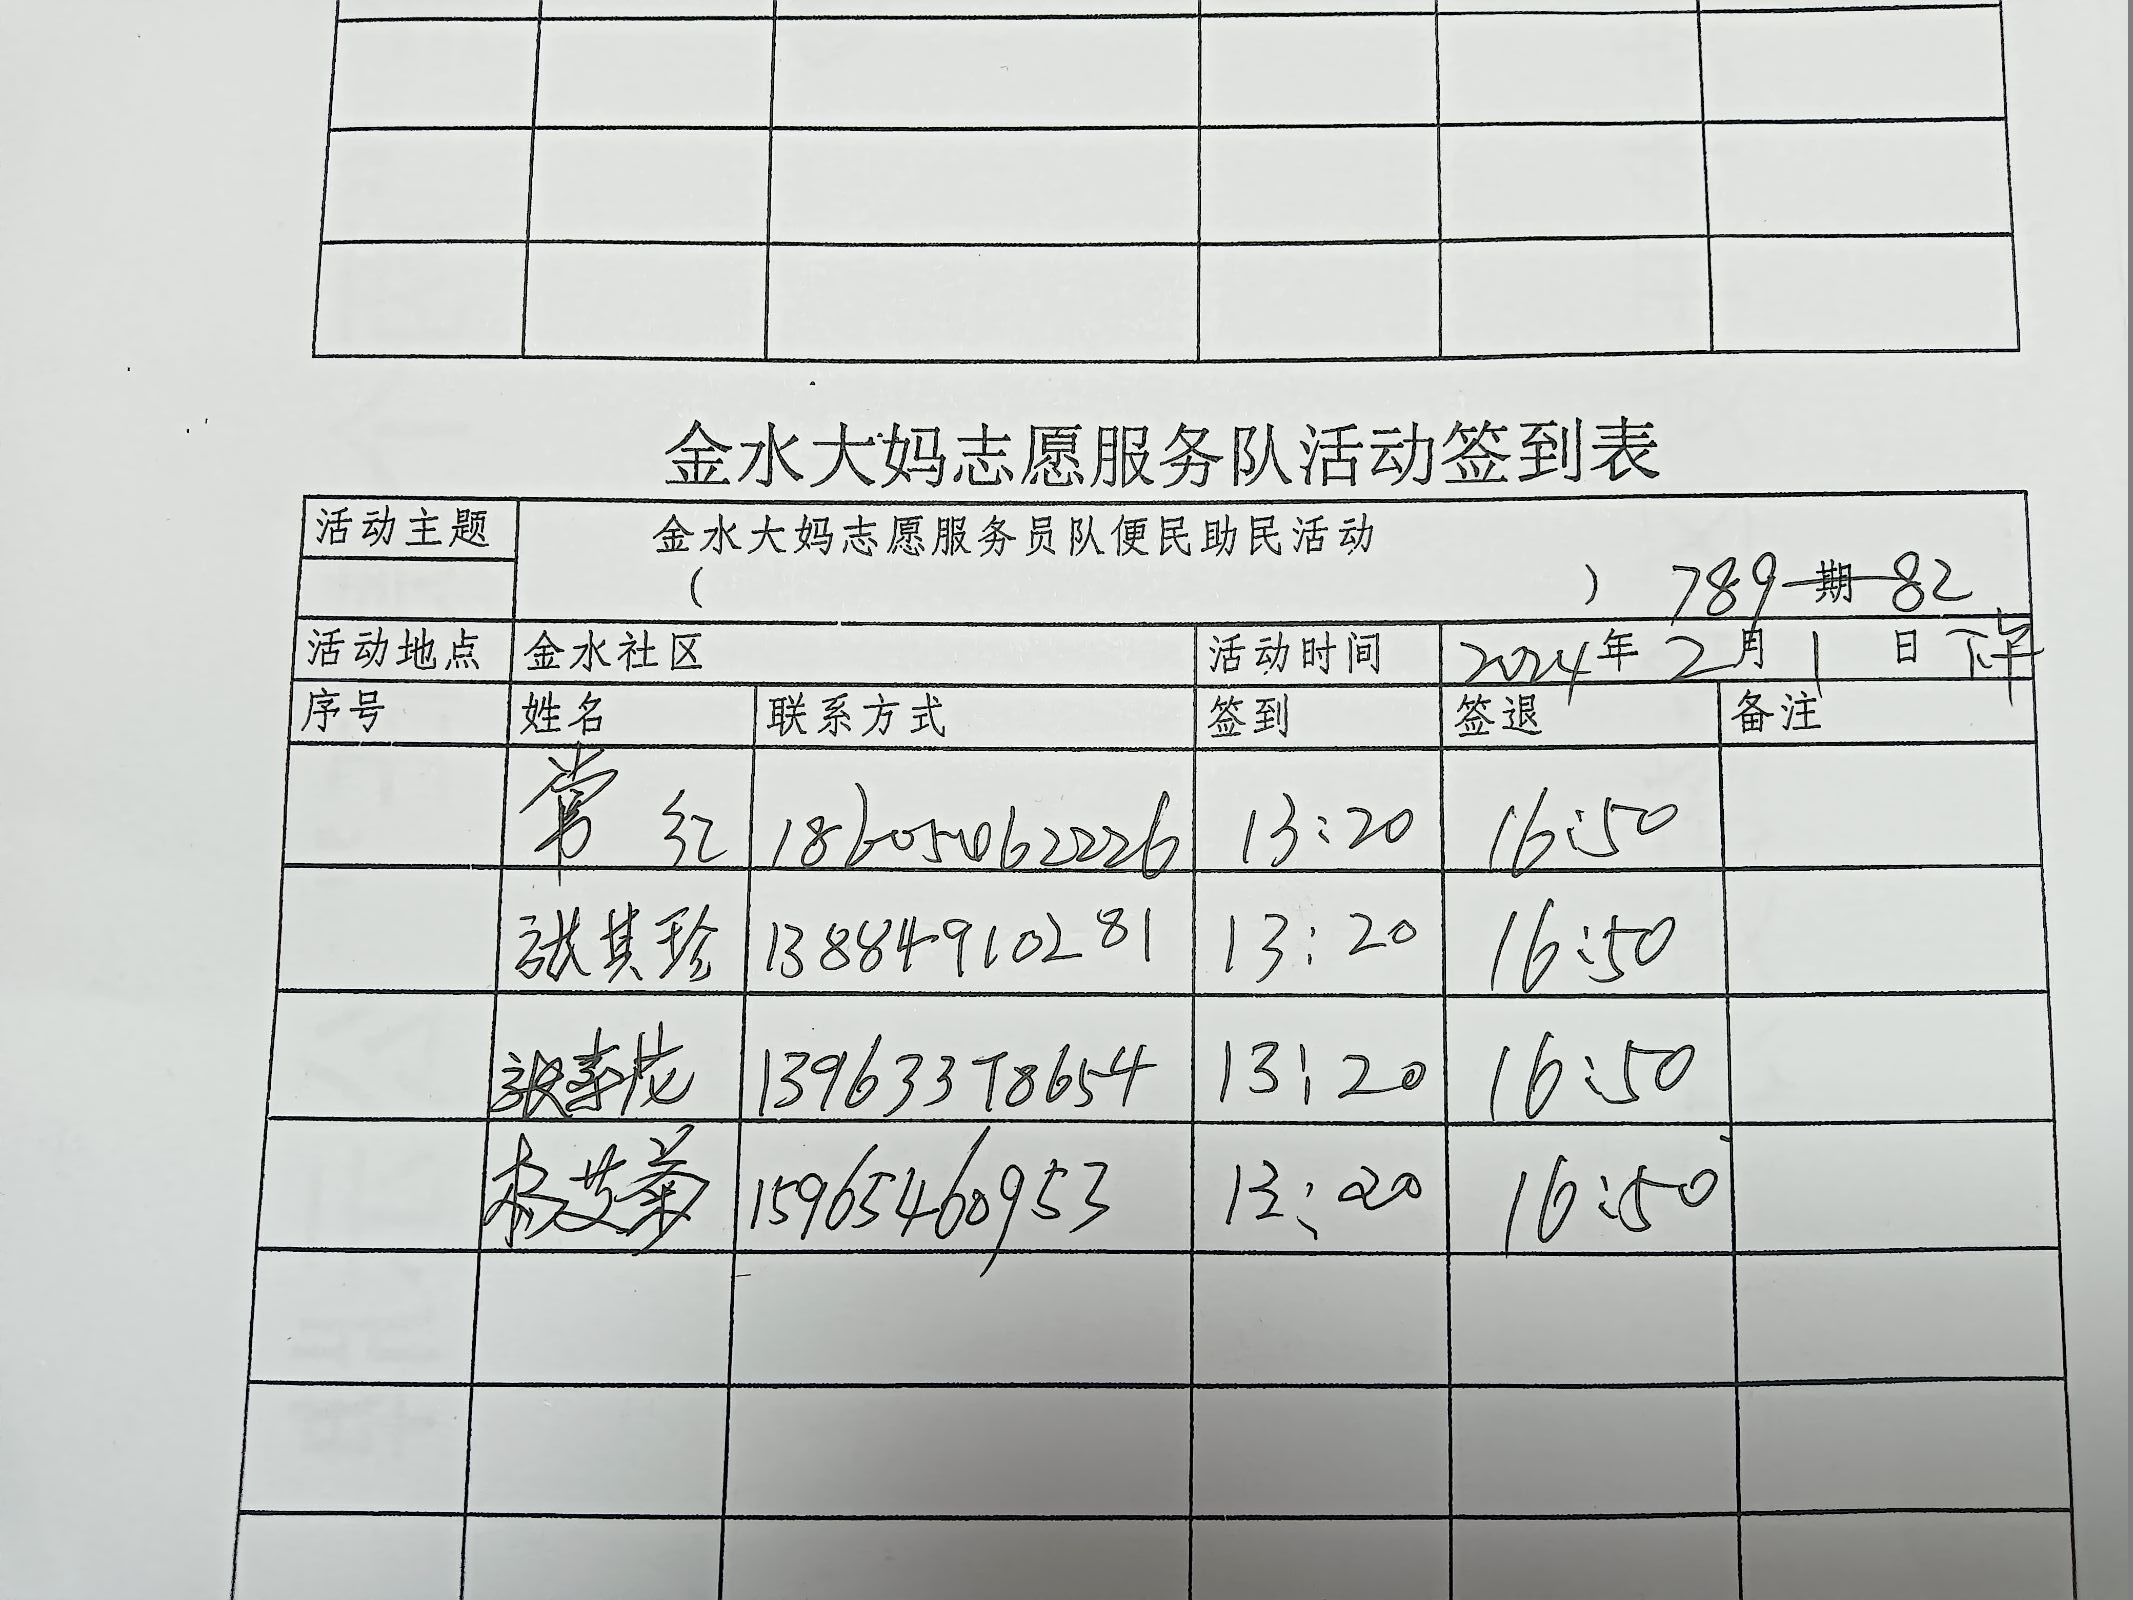 金水大妈志愿服务队活动签到表
活动主题 金水大妈志愿服务员队便民助民活动
( ) 789期-82
活动地点 金水社区 活动时间 2024年2月1日下午
序号 姓名 联系方式 签到 签退 备注
常红 13:20 16:50
张其珍 13884910281 13:20 16:50
13963378654 13:20 16:50
杨艾菊 15965460953 13:20 16:50